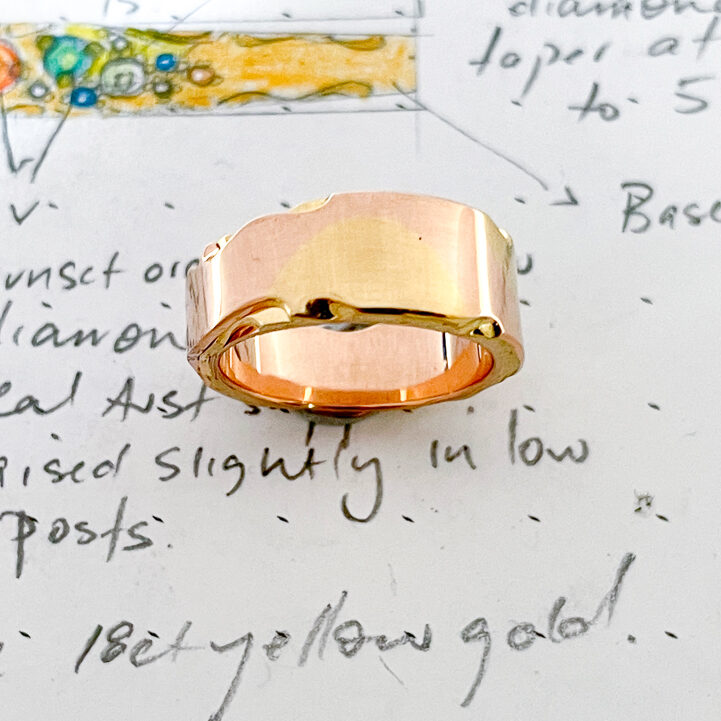 diamond
taper at
to 5
Base
unset or
diamon
eal Aust
raised slightly in low
posts.
18ct yellow gold..